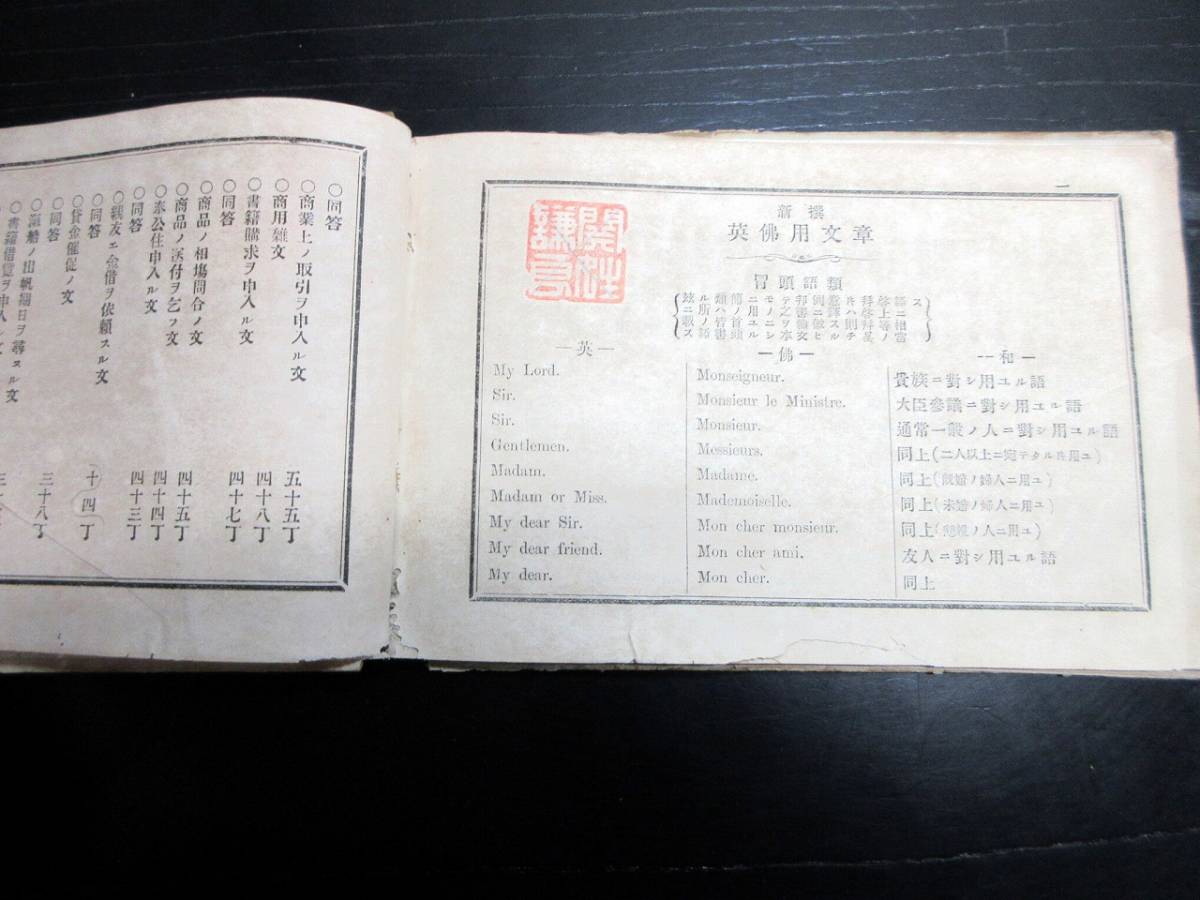 〇同答
〇商業上ノ取引ヲ申入ル文
五十五丁
〇商用雑文
四十八丁
〇書籍購求ヲ申入ル文
四十七丁
〇同答
〇商品ノ相塲問合ノ文
四十五丁
〇商品ノ送付ヲ乞フ文
四十四丁
〇奉公住申入ル文
四十三丁
〇同答
〇親友エ金借ヲ依頼スル文
〇同答
十四丁
〇貸金催促ノ文
三十八丁
〇同答
〇郵船ノ出帆期日ヲ尋スル文
〇書籍借覧ヲ申
一
新撰
英佛用文章
冒頭語類
―英―
My Lord.
Sir.
Sir.
Gentlemen.
Madam.
Madam or Miss.
My dear Sir.
My dear friend.
My dear.
―佛―
Monseigneur.
Monsieur le Ministre.
Monsieur.
Messieurs.
Madame.
Mademoiselle.
Mon cher monsieur.
Mon cher ami.
Mon cher.
―和―
貴族ニ對シ用ユル語
大臣參議ニ對シ用ユル語
通常一般ノ人ニ對シ用ユル語
同上(二人以上ニ宛テタル時用ユ)
同上(既婚ノ婦人ニ用ユ)
同上(未婚ノ婦人ニ用ユ)
同上(懇親ノ人ニ用ユ)
友人ニ對シ用ユル語
同上